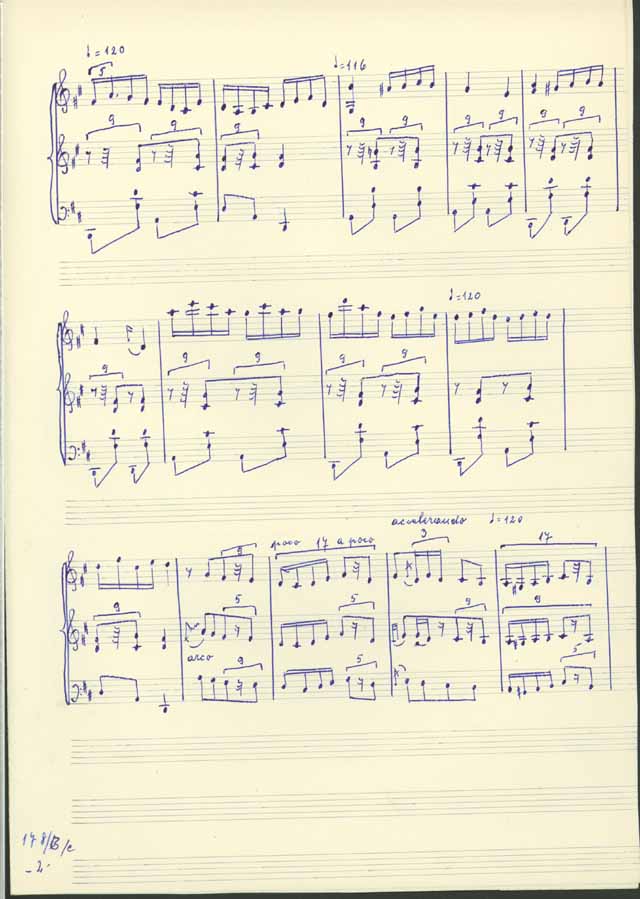 ♩=120
5
♩=116
9 9 9 9 9 9 9 9 9
♩=120
9 9 9 9 9 9
accelerando ♩=120
poco 17 a poco 3 17
9
9 5 5 9 9
arco 9 5 5
178/B/c
-2-